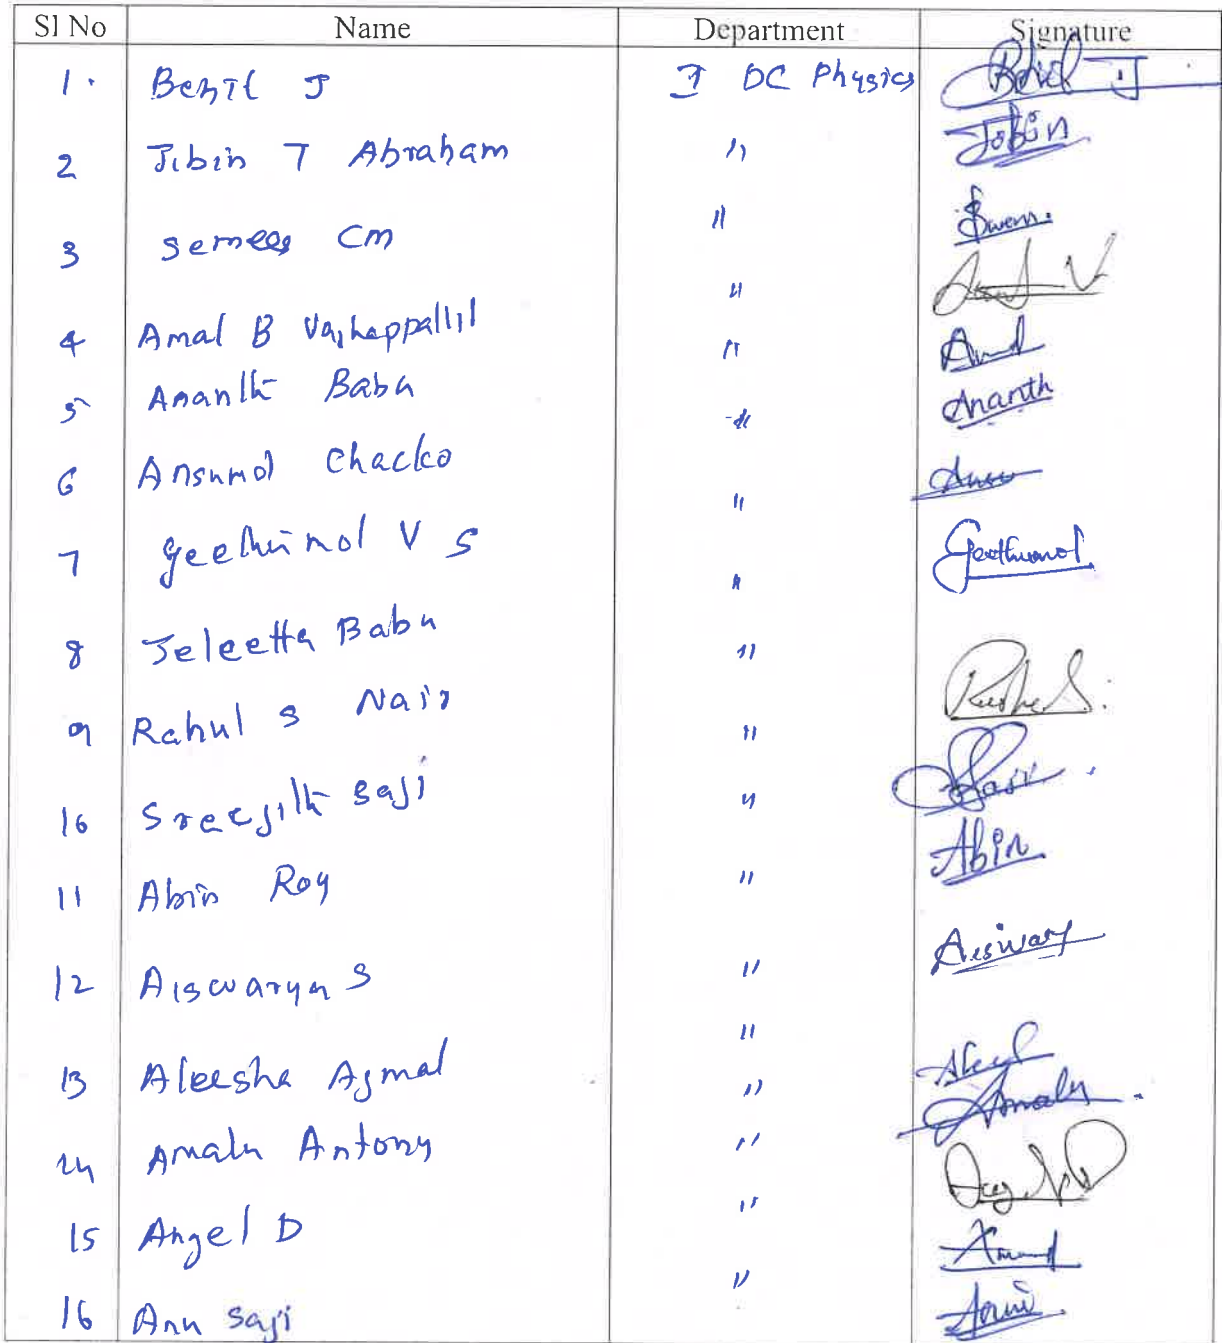 Sl No Name Department Signature
1. Benil J I DC Physics
2 Jibin T Abraham " Jobin
3 Semees Cm "
4 Amal B Vazhappallil "
5 Ananth Babu " Ananth
6 Ansumol Chacko "
7 Geethumol V S " Geethumol
8 Jeleetta Babu "
9 Rahul S Nair "
10 Sreejith Saji "
11 Abin Roy " Abin
12 Aiswarya S " Aiswary
13 Aleesha Ajmal "
14 Amalu Antony " Amalu
15 Angel D "
16 Anu Saji "